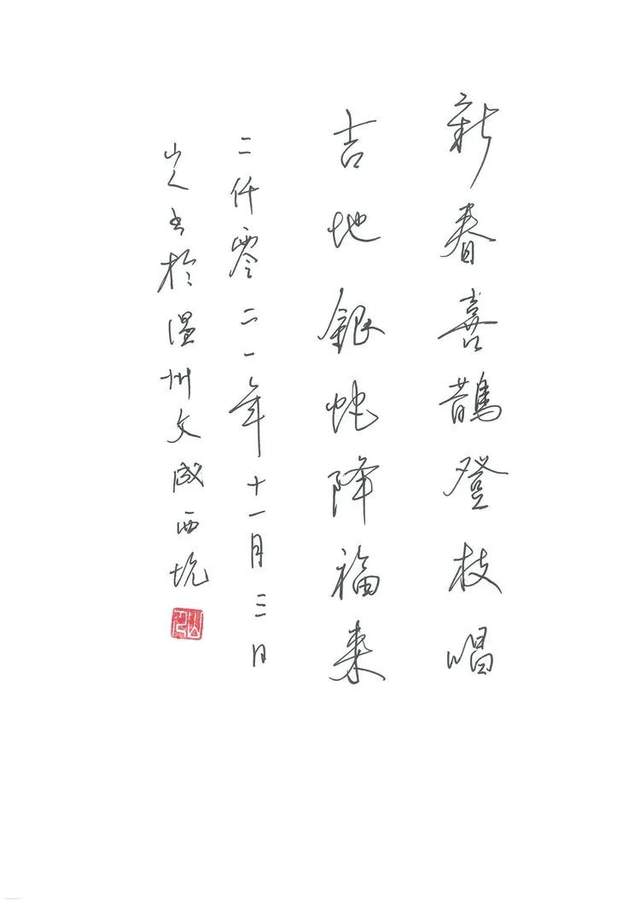 新春喜鵲登枝唱
吉地銀蛇降福来
二仟零二一年十一月三日
山人书於温州文成西坑